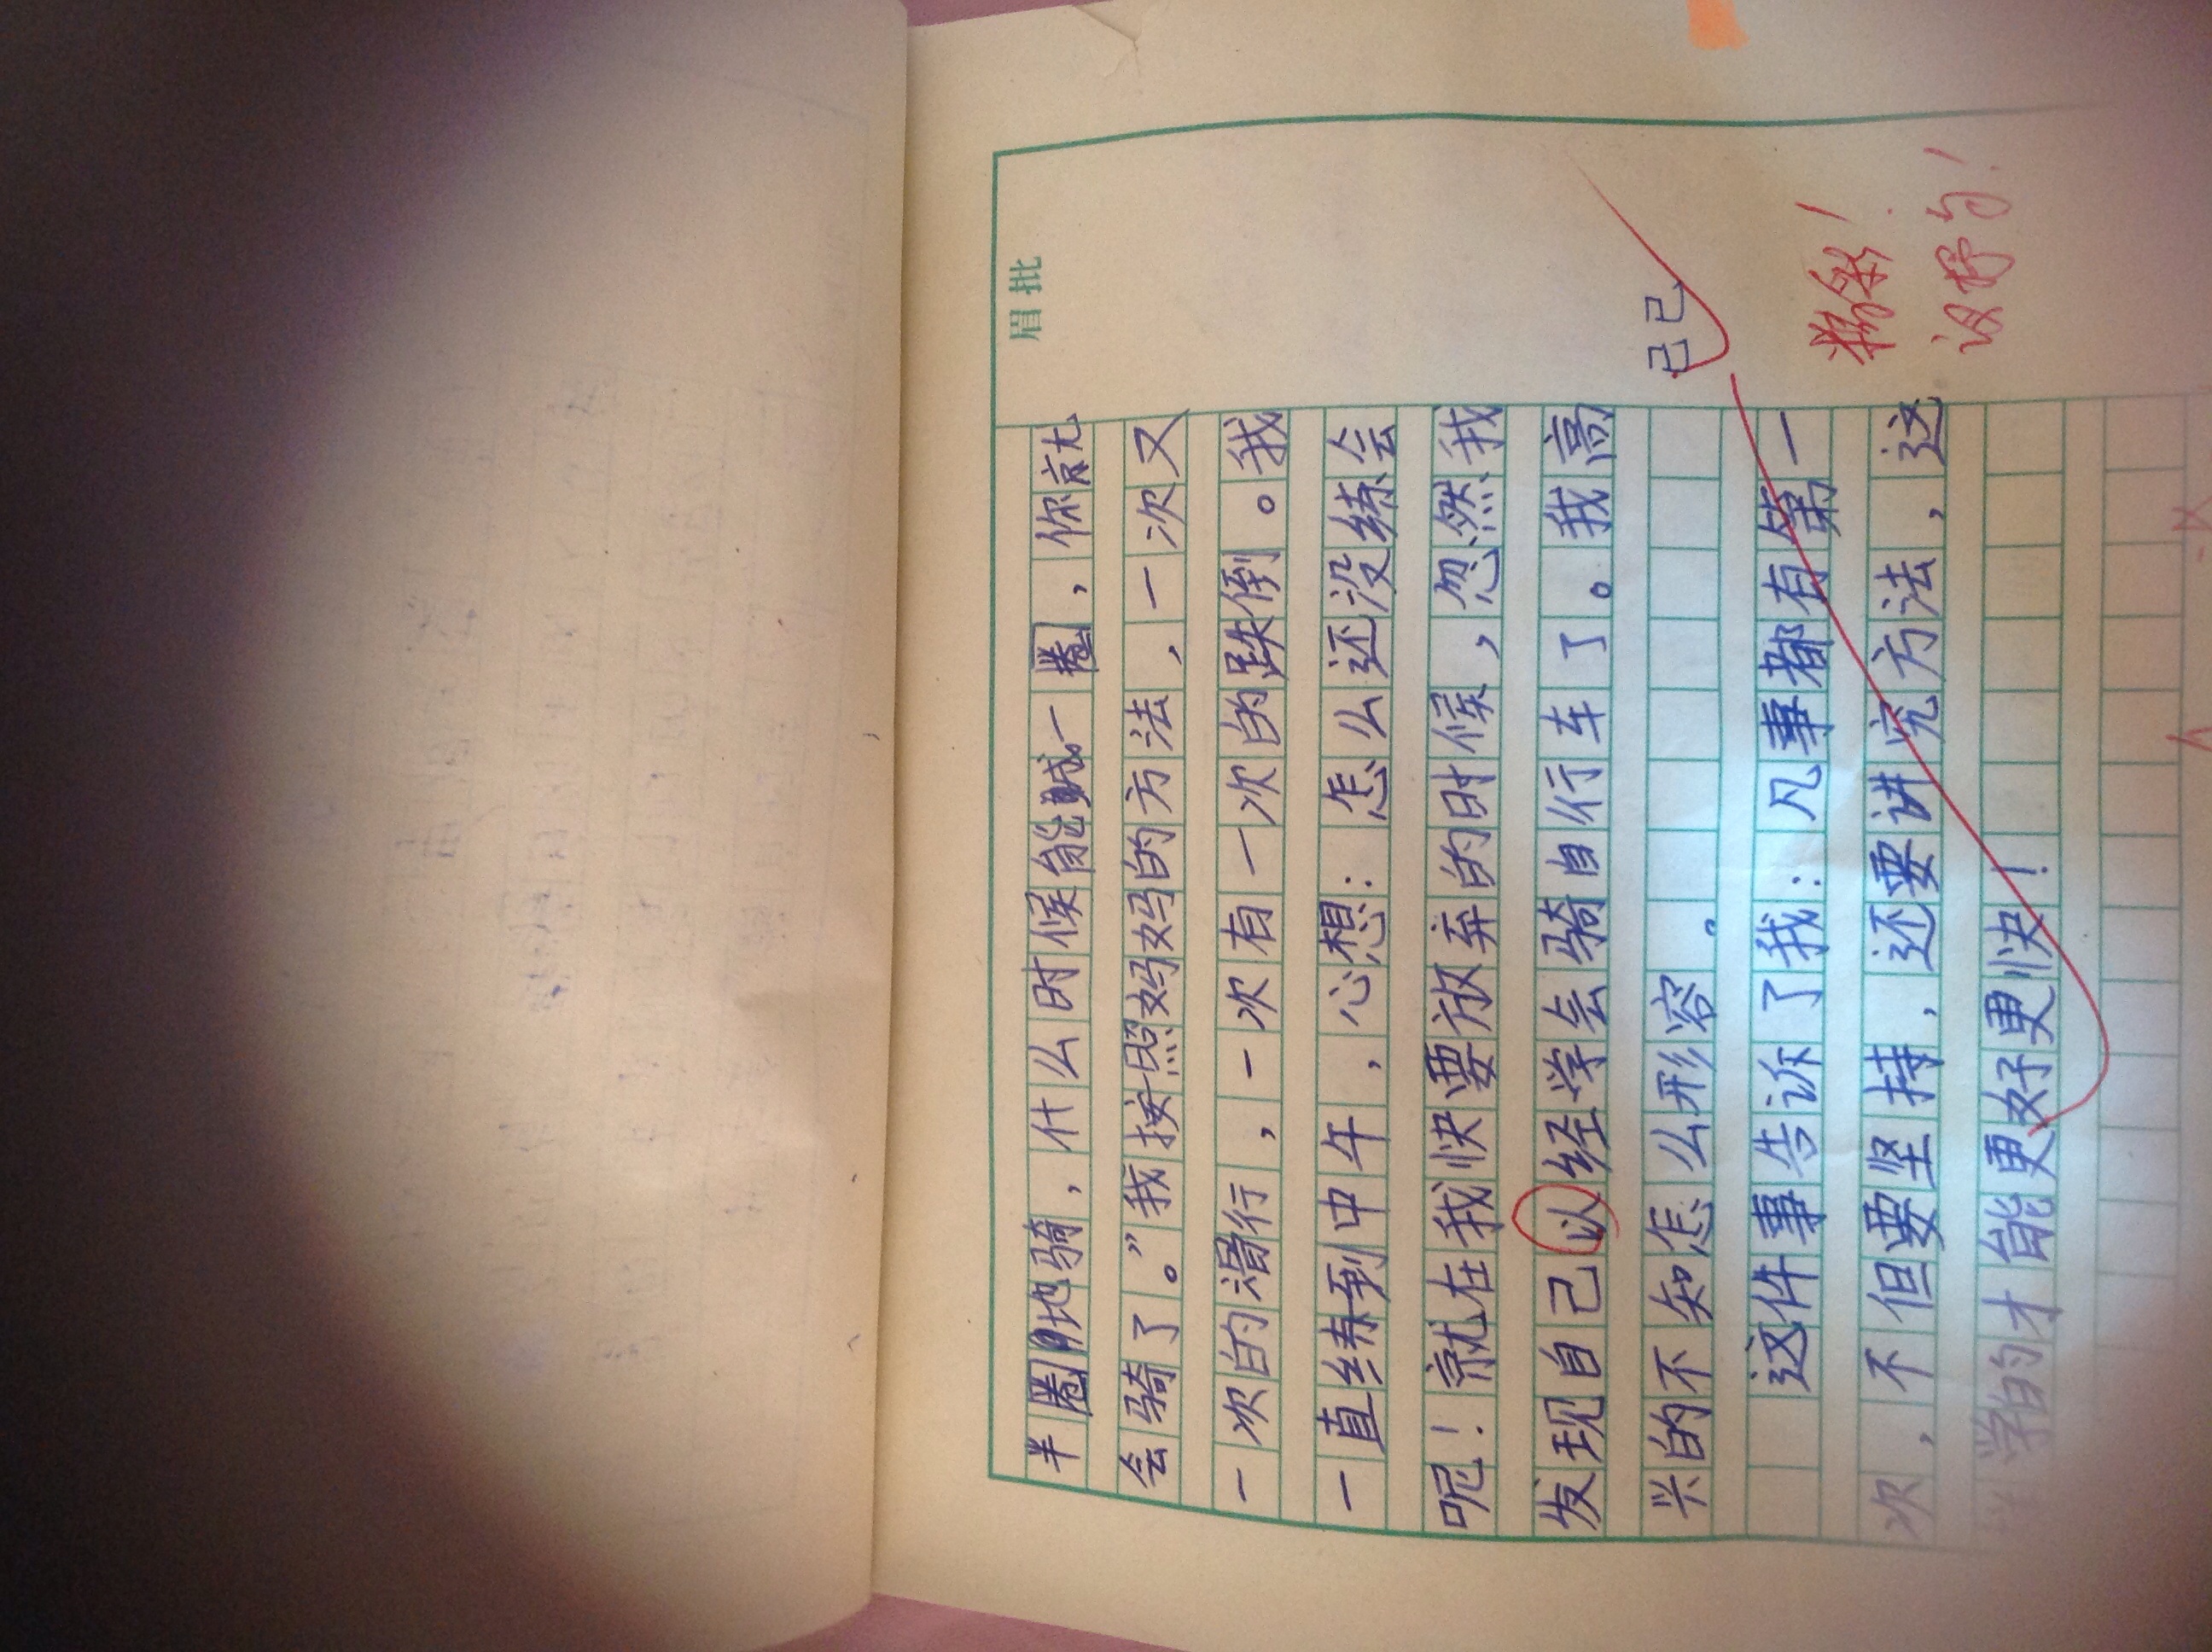 眉批
半圈地骑，什么时候能成一圈，你就
会骑了。”我按照妈妈的方法，一次又
一次的滑行，一次有一次的跌倒。我
一直练到中午，心想：怎么还没练会
呢！就在我快要放弃的时候，忽然我
发现自己以经学会骑自行车了。我高
兴的不知怎么形容。
己已
这件事告诉了我：凡事都有第一
次，不但要坚持，还要讲究方法，这
学的才能更好更快！